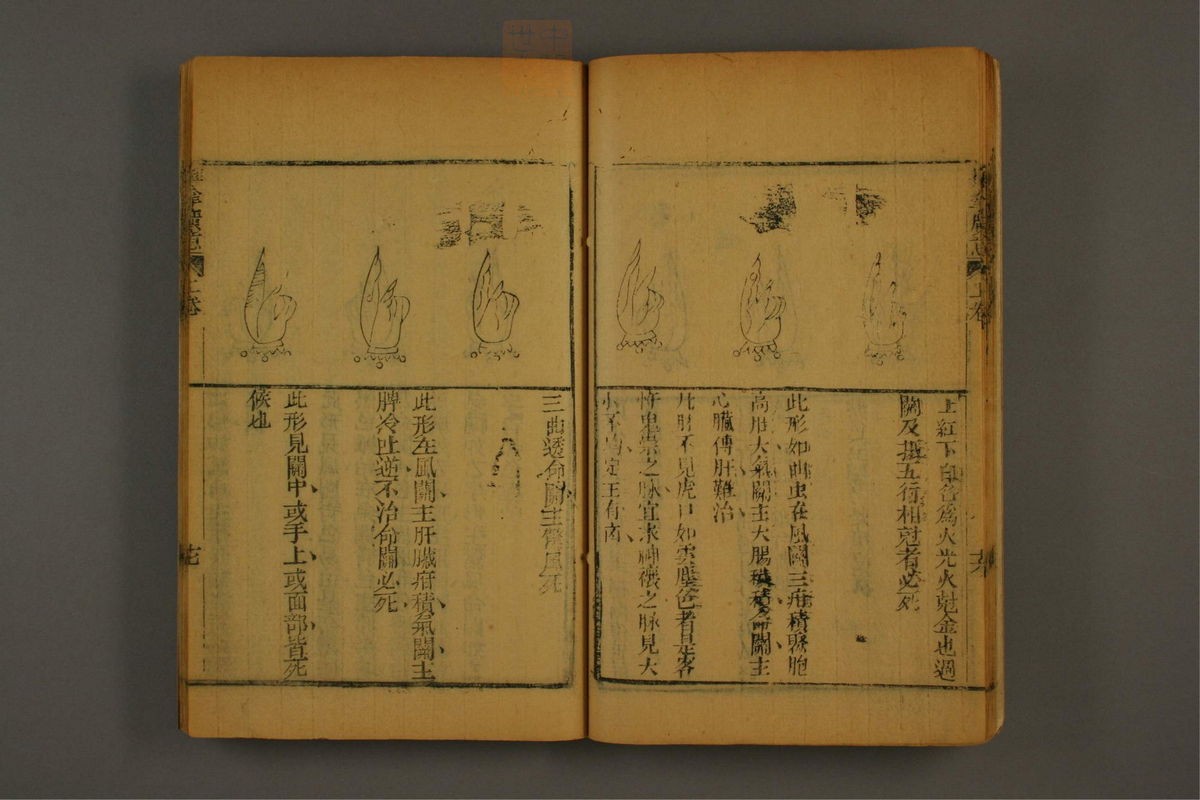 上紅下白名為火光火尅金也過
關及據五行相尅者必死
此形如曲虫在風關三疳積聚胞
高肚大氣關主大腸積命關主
心臟傳肝難治
此形不見虎口如雲塵色者是客
忤鬼祟之脉宜求神禳之脉見大
小不定主有
三曲透命關主腎風死
此形在風關主肝臟疳積氣關主
脾冷止逆不治命關必死
此形見關中或手上或面部皆死
候也
上卷
上卷